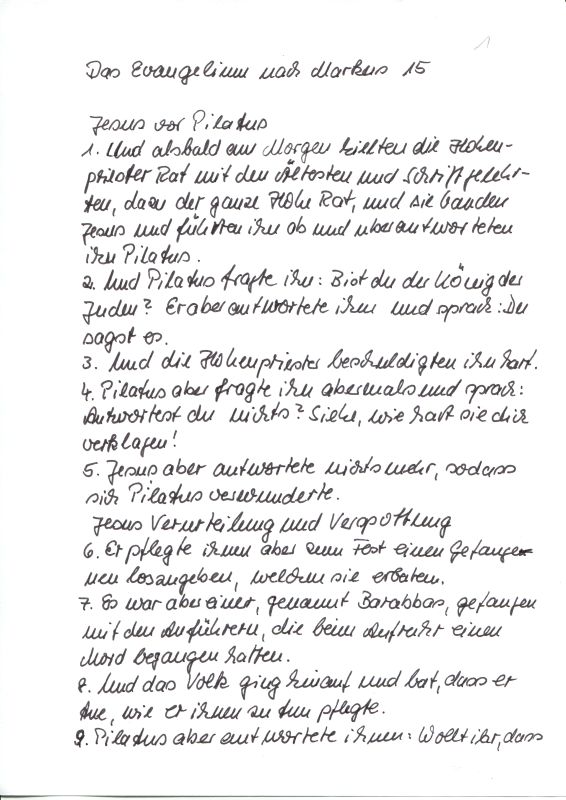 1
Das Evangelium nach Markus 15
Jesus vor Pilatus
1. Und alsbald am Morgen hielten die Hohen-
priester Rat mit den Ältesten und Schriftgelehr-
ten, dazu der ganze Hohe Rat, und sie banden
Jesus und führten ihn ab und überantworteten
ihn Pilatus.
2. Und Pilatus fragte ihn: Bist du der König der
Juden? Er aber antwortete ihm und sprach: Du
sagst es.
3. Und die Hohenpriester beschuldigten ihn hart.
4. Pilatus aber fragte ihn abermals und sprach:
Antwortest du nichts? Siehe, wie hart sie dich
verklagen!
5. Jesus aber antwortete nichts mehr, sodass
sich Pilatus verwunderte.
Jesus Verurteilung und Verspottung
6. Er pflegte ihnen aber zum Fest einen Gefange-
nen loszugeben, welchen sie erbaten.
7. Es war aber einer, genannt Barabbas, gefangen
mit den Auführern, die beim Aufruhr einen
Mord begangen hatten.
8. Und das Volk ging hinauf und bat, dass er
tue, wie er ihnen zu tun pflegte.
9. Pilatus aber antwortete ihnen: Wollt ihr, dass